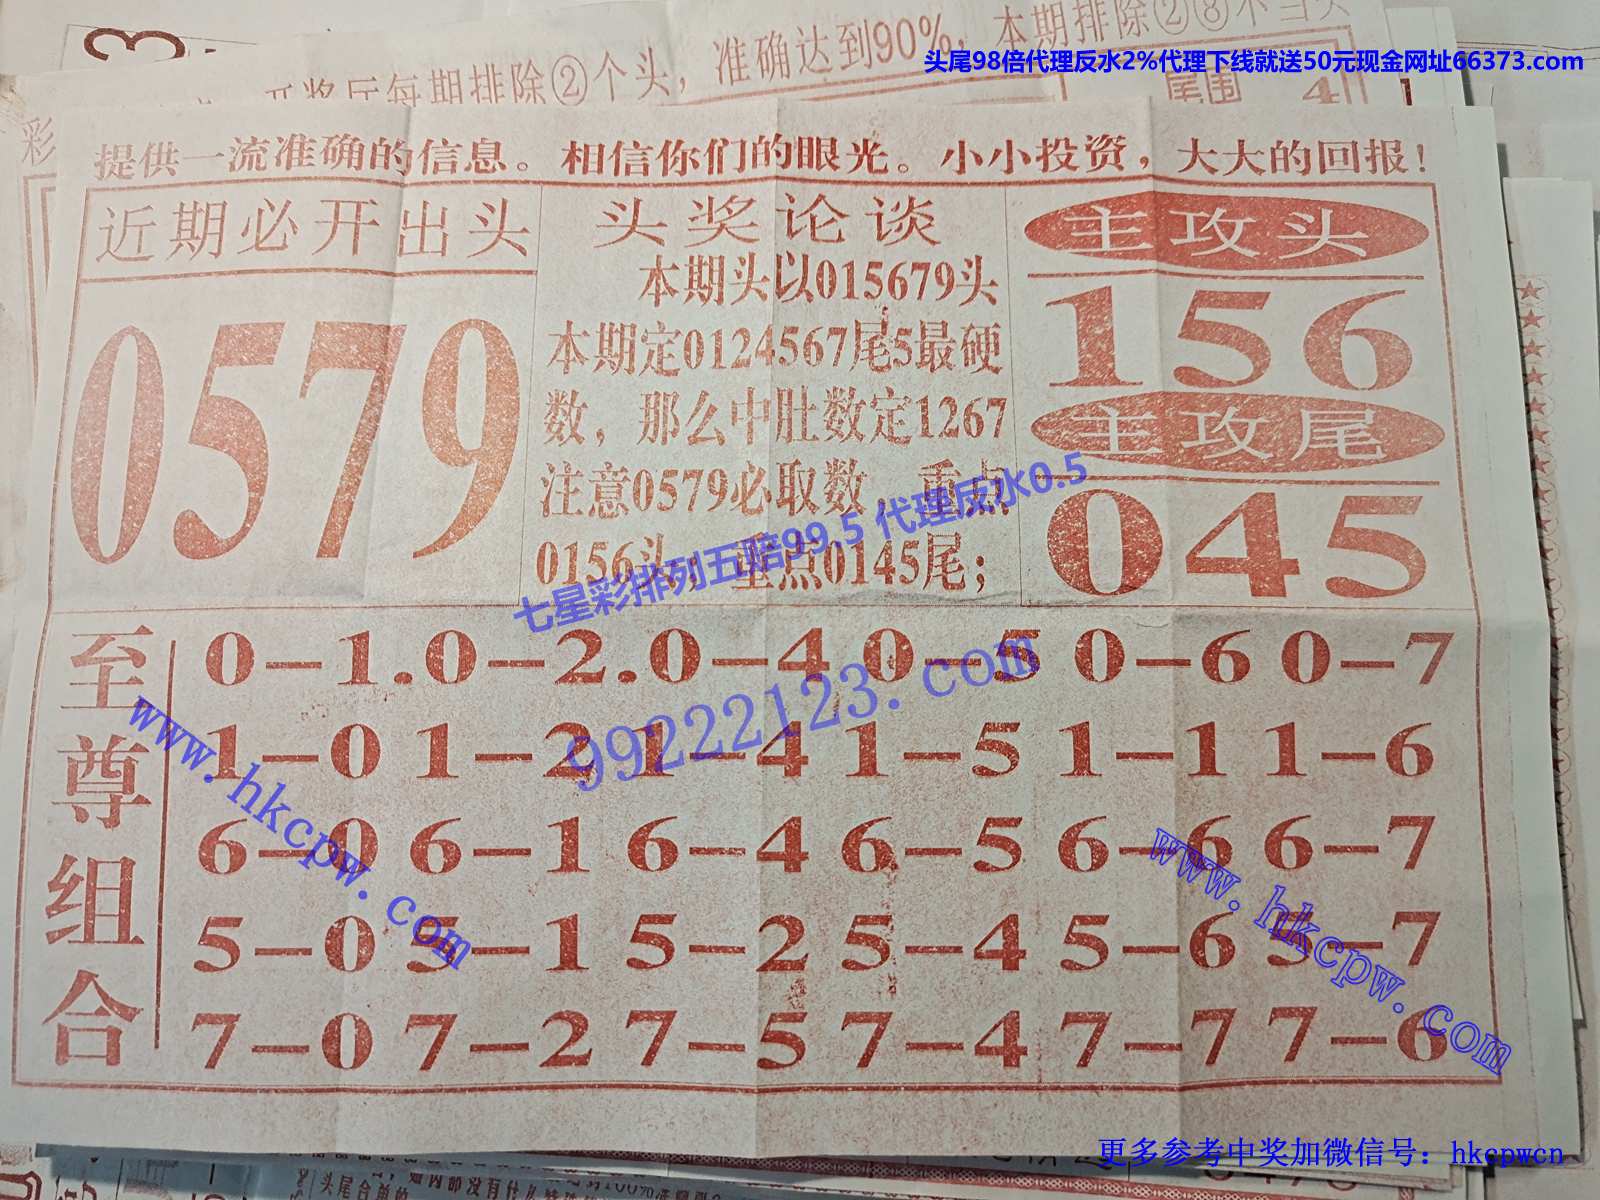 开奖厅每期排除②个头，准确达到90%，本期排除②⑧不当头
头尾98倍代理反水2%代理下线就送50元现金网址66373.com
尾围 4
彩
提供一流准确的信息。相信你们的眼光。小小投资，大大的回报！
近期必开出头
0579
头奖论谈
本期头以015679头
本期定0124567尾5最硬
数，那么中肚数定1267
注意0579必取数，重点
0156头；重点0145尾；
主攻头
156
主攻尾
045
七星彩排列五赔99.5 代理反水0.5
99222123.com
至尊组合
0－1.0－2.0－4 0－5 0－6 0－7
1－0 1－2 1－4 1－5 1－1 1－6
6－0 6－1 6－4 6－5 6－6 6－7
5－0 5－1 5－2 5－4 5－6 5－7
7－0 7－2 7－5 7－4 7－7 7－6
www.hkcpw.com
www.hkcpw.com
更多参考中奖加微信号：hkcpwcn